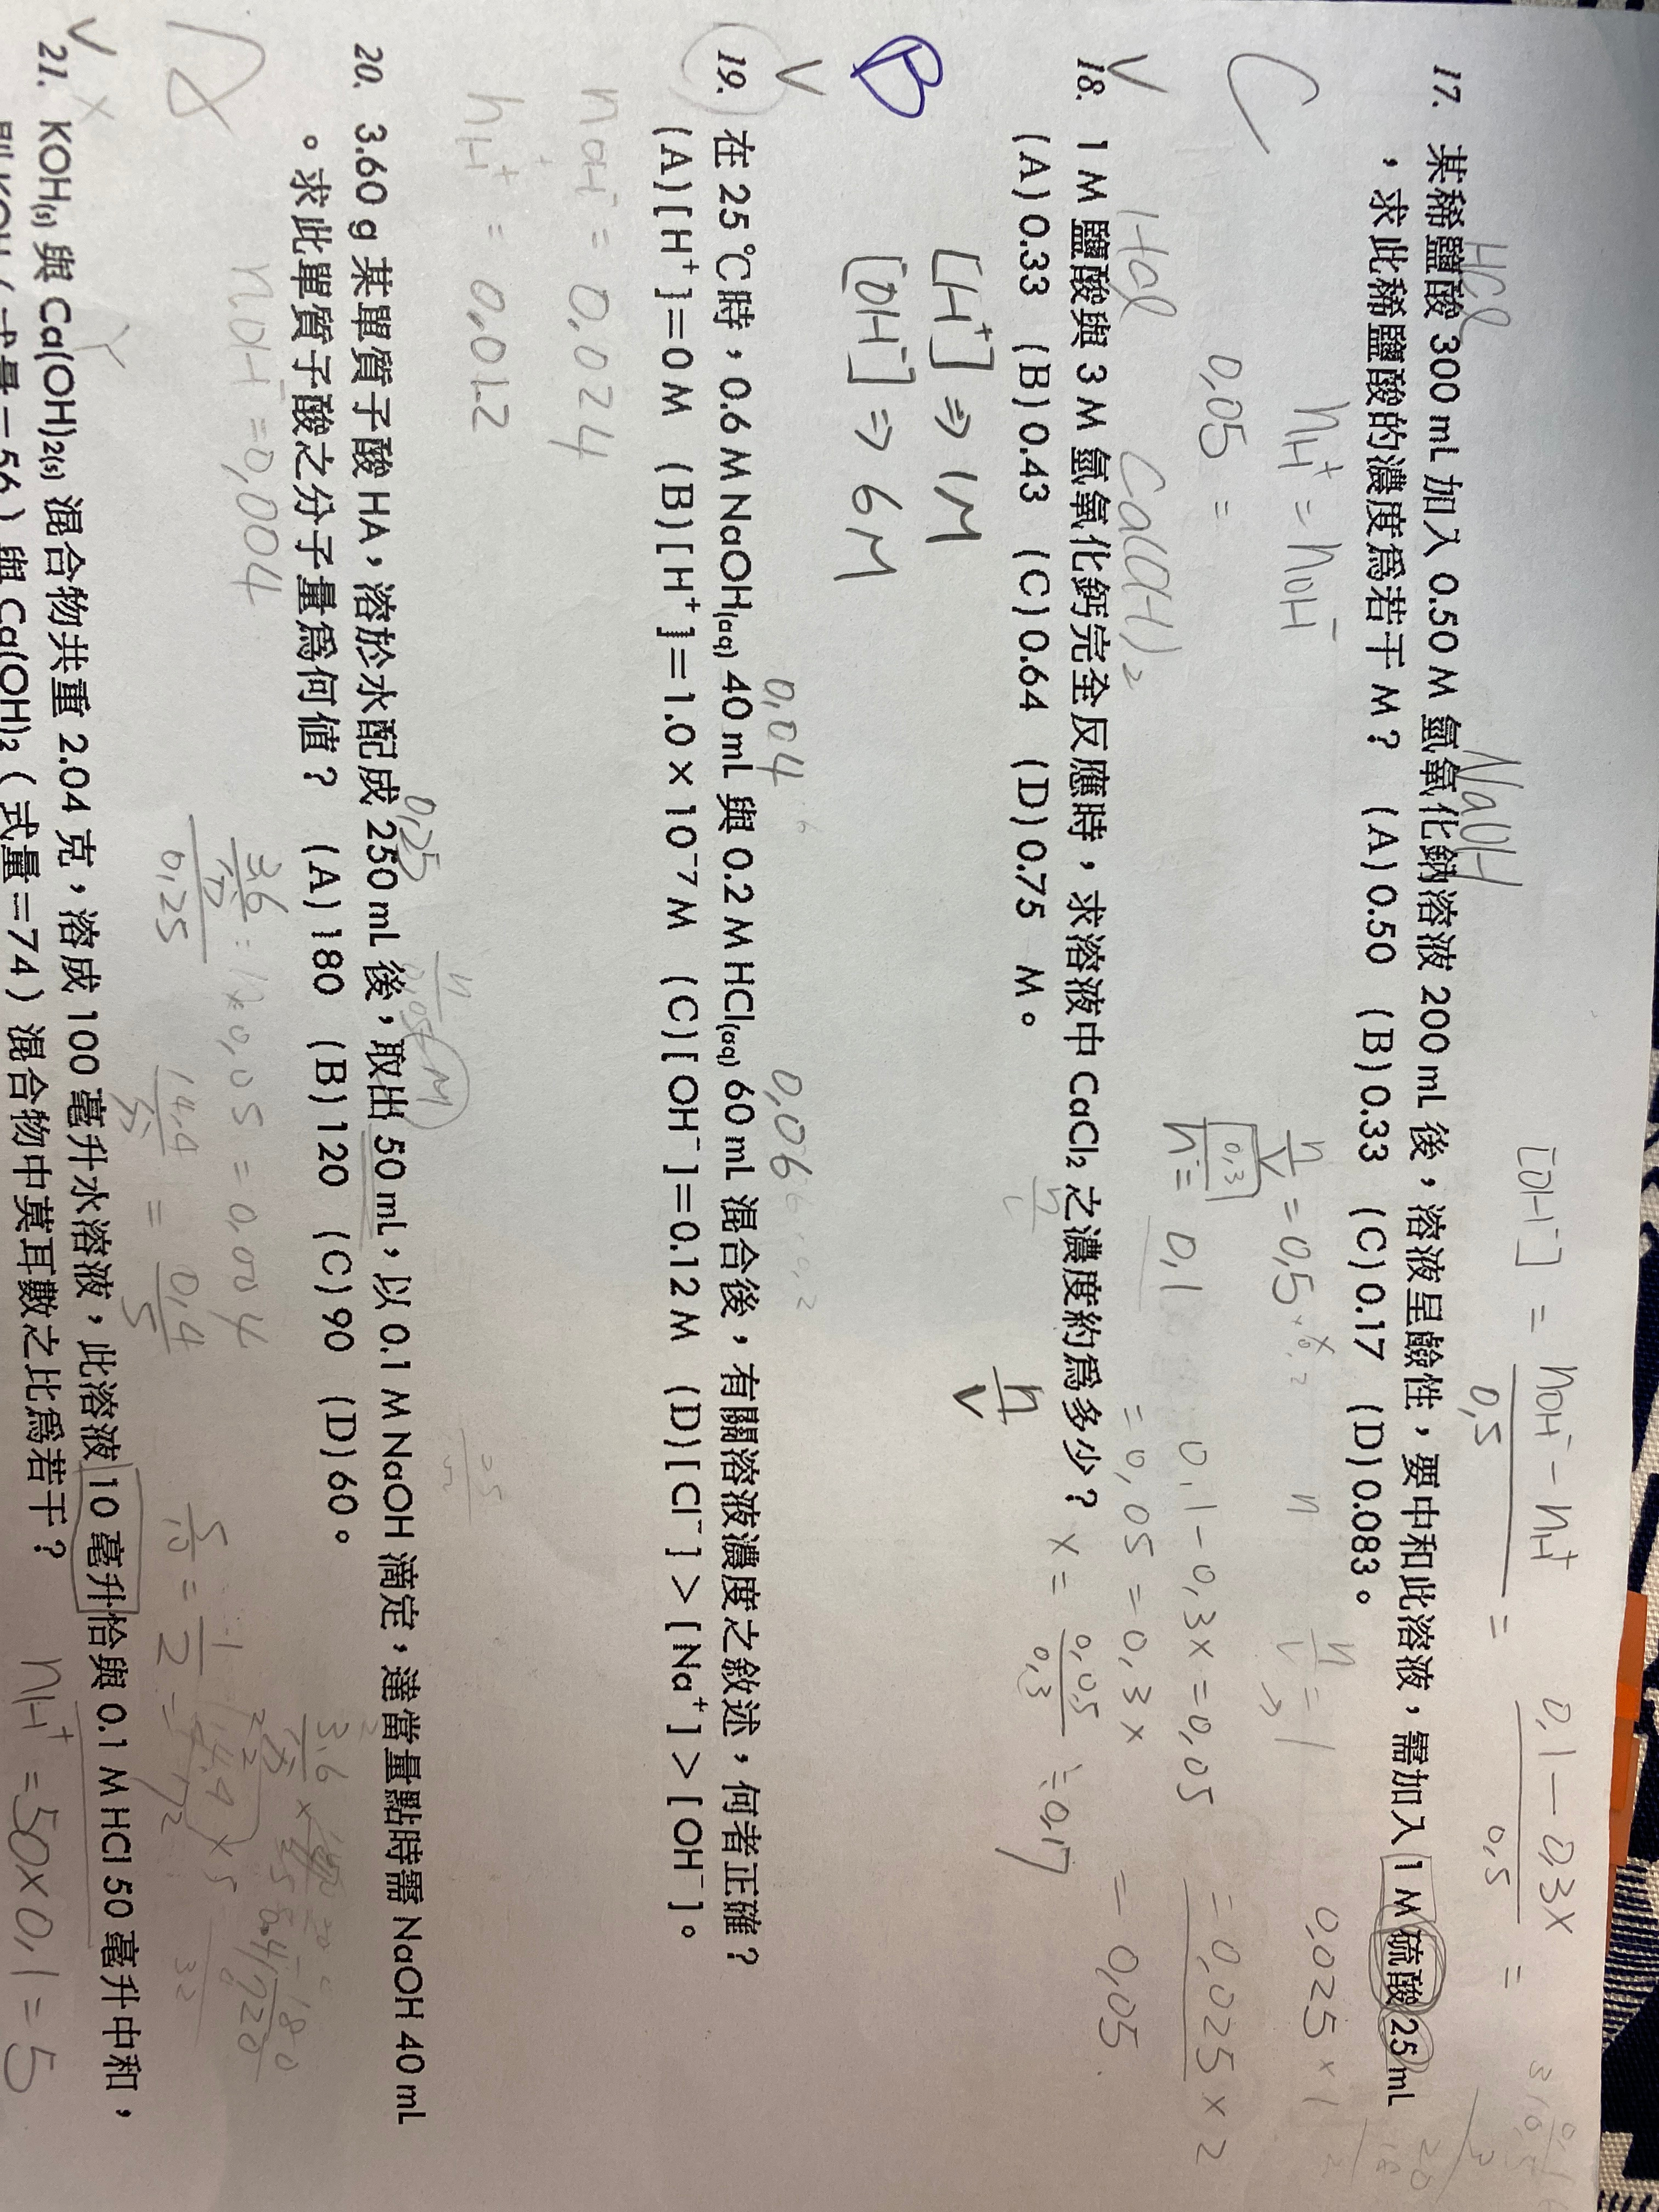 [OH⁻] = nOH⁻ - nH⁺ / 0.5 = 0.1 - 0.3x / 0.5 =
HCl NaOH
17. 某稀鹽酸 300 mL 加入 0.50 M 氫氧化鈉溶液 200 mL 後，溶液呈鹼性，要中和此溶液，需加入 1 M 硫酸 25 mL
，求此稀鹽酸的濃度為若干 M？ (A) 0.50 (B) 0.33 (C) 0.17 (D) 0.083。
C
nH⁺ = nOH⁻
n/V = 0.5
0.025 × 1
0.05 =
n = 0.1
0.1 - 0.3x = 0.05
= 0.025 × 2
= 0.05 = 0.3x
= 0.05
x = 0.05/0.3 ≒ 0.17
HCl Ca(OH)₂
V
18. 1 M 鹽酸與 3 M 氫氧化鈣完全反應時，求溶液中 CaCl₂ 之濃度約為多少？
(A) 0.33 (B) 0.43 (C) 0.64 (D) 0.75 M。
B
[H⁺] ⇒ 1M
[OH⁻] ⇒ 6M
n/V
0.04 0.06
V
19. 在 25℃時，0.6 M NaOH(aq) 40 mL 與 0.2 M HCl(aq) 60 mL 混合後，有關溶液濃度之敘述，何者正確？
(A) [H⁺]=0 M (B) [H⁺]=1.0×10⁻⁷ M (C) [OH⁻]=0.12 M (D) [Cl⁻]>[Na⁺]>[OH⁻]。
nOH⁻ = 0.024
nH⁺ = 0.012
0.25
20. 3.60 g 某單質子酸 HA，溶於水配成 250 mL 後，取出 50 mL，以 0.1 M NaOH 滴定，達當量點時需 NaOH 40 mL
。求此單質子酸之分子量為何值？ (A) 180 (B) 120 (C) 90 (D) 60。
nOH⁻ = 0.004
V
21. KOH(s) 與 Ca(OH)₂(s) 混合物共重 2.04 克，溶成 100 毫升水溶液，此溶液 10 毫升恰與 0.1 M HCl 50 毫升中和，
則 KOH（式量=56）與 Ca(OH)₂（式量=74）混合物中莫耳數之比為若干？
nH⁺ = 50×0.1 = 5